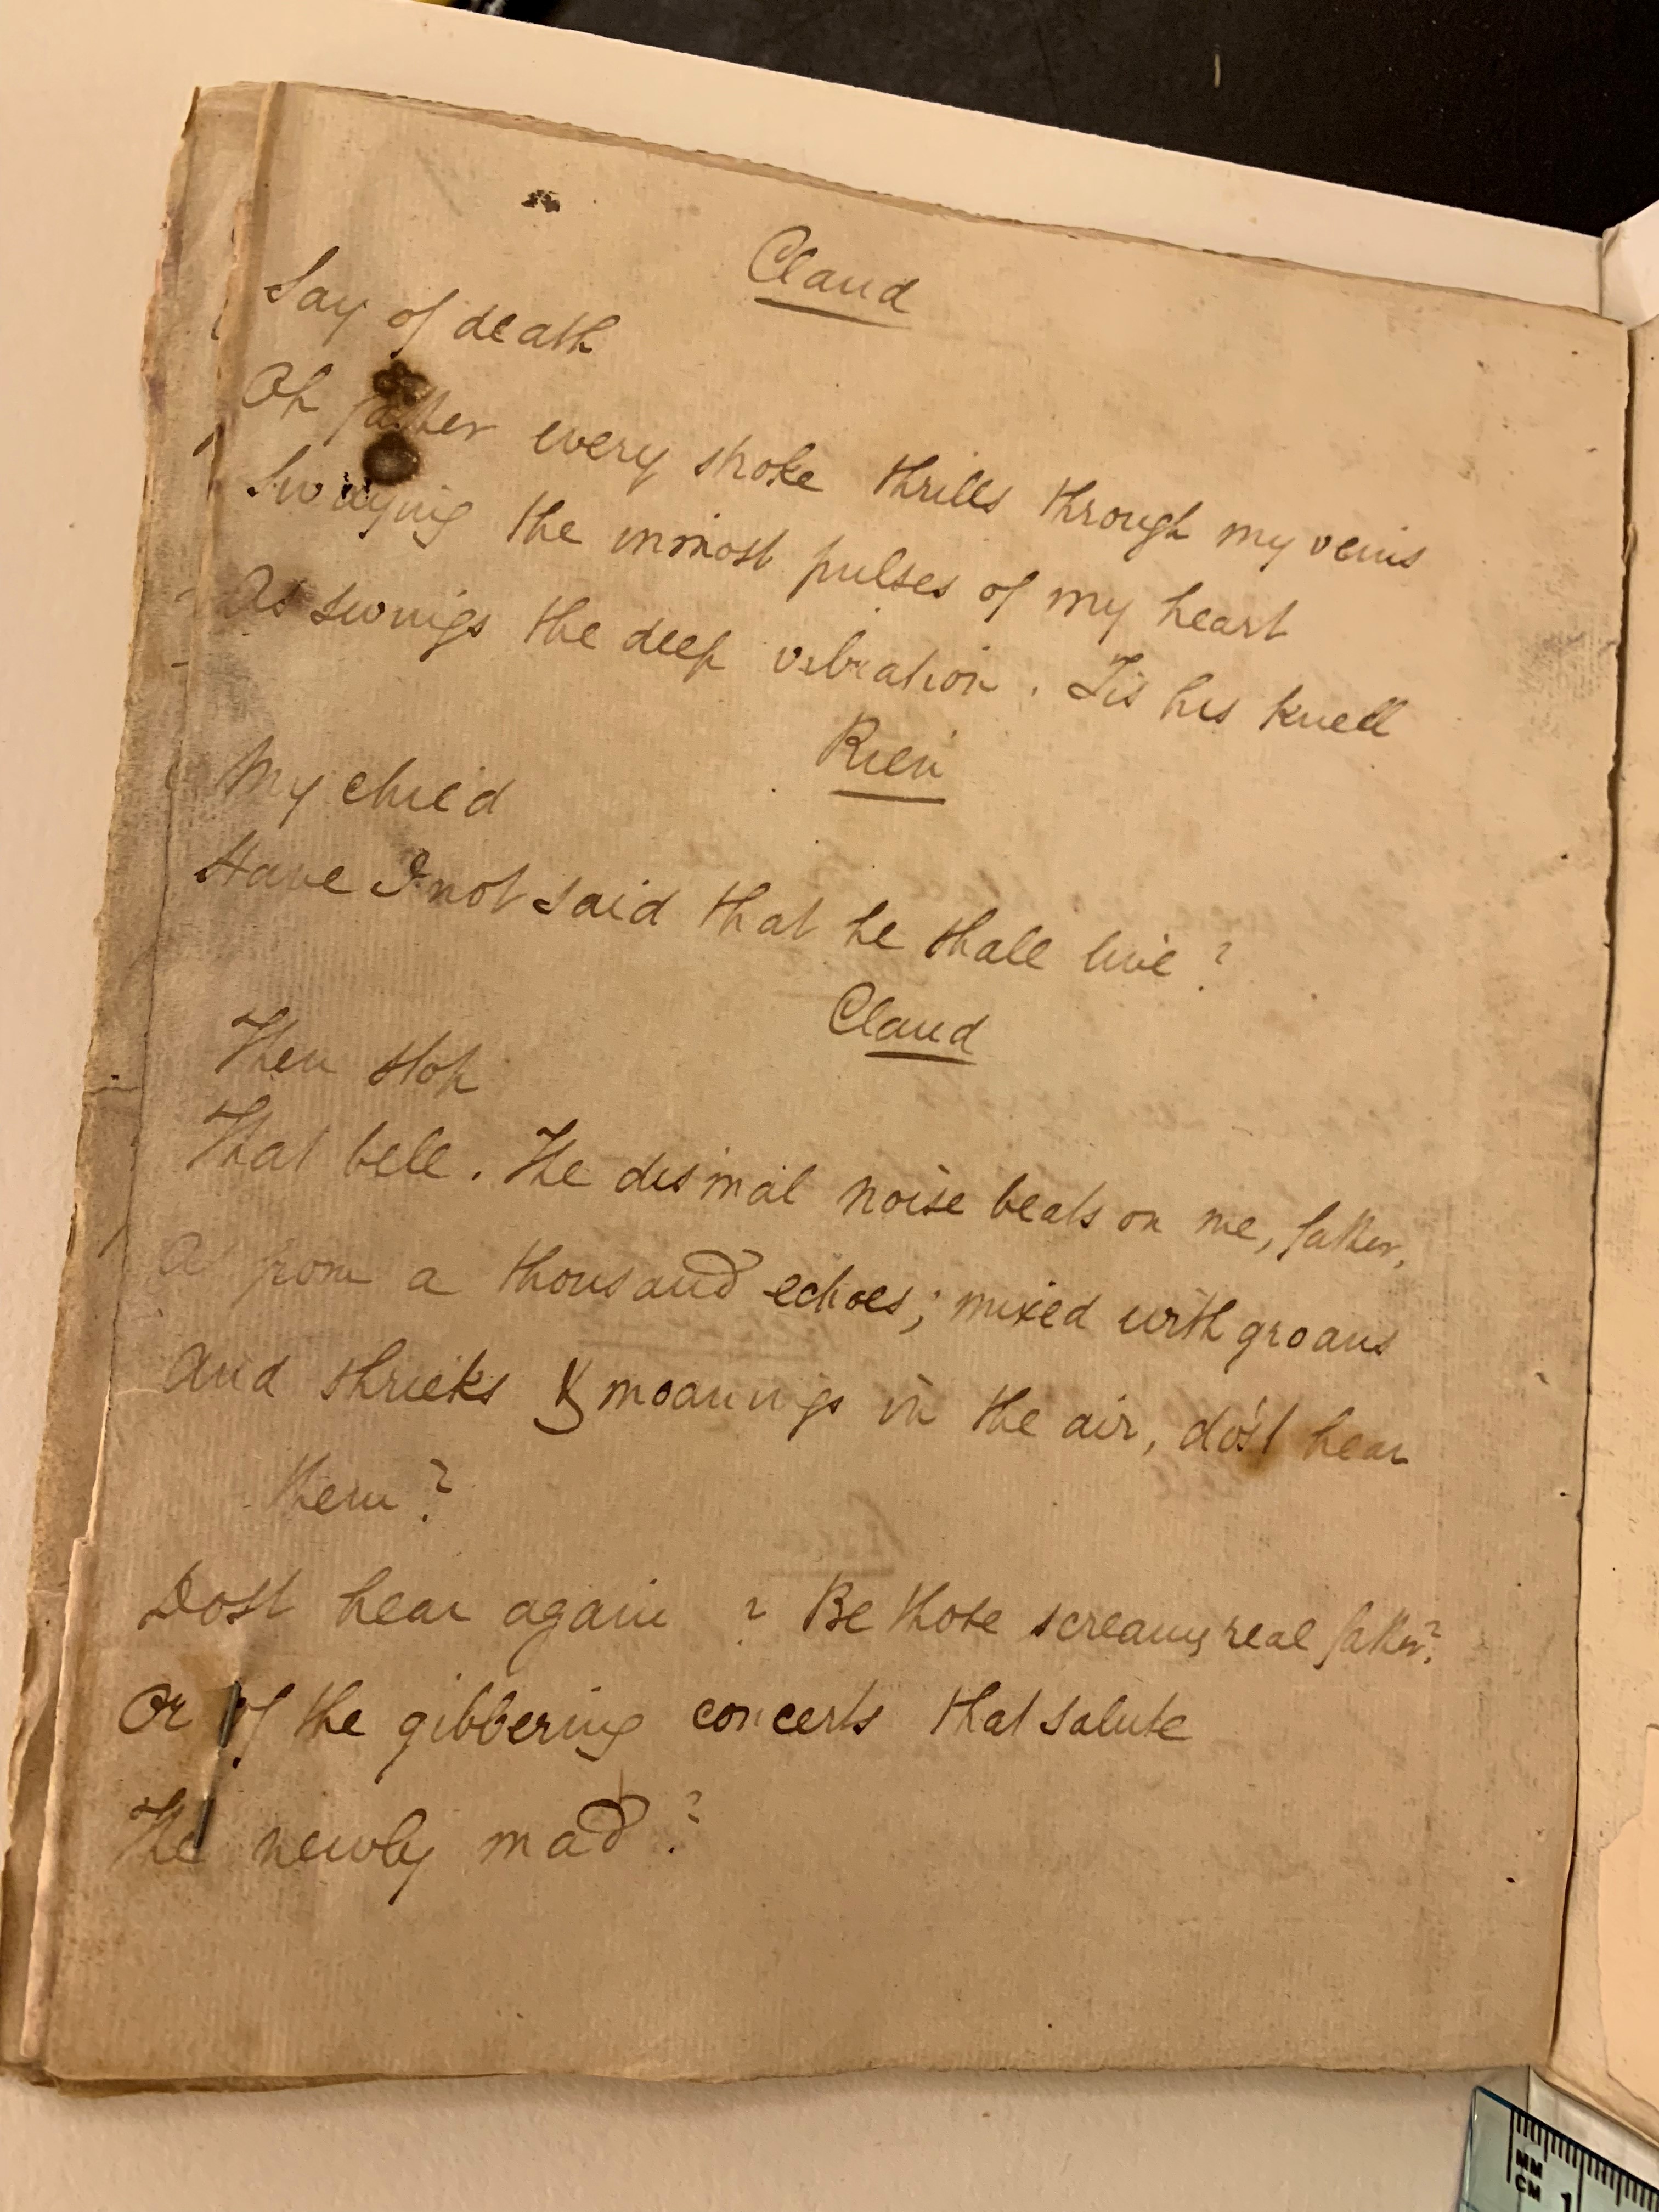 Claud
Say of death
Oh father every stroke thrills through my veins
Swaying the inmost pulses of my heart
As swings the deep vibration. Tis his knell
Rien
My child
Have I not said that he shall live?
Claud
Then stop
That bell. The dismal noise beats on me, father,
As from a thousand echoes; mixed with groans
And shrieks & moanings in the air, do'st hear
them?
Dost hear again? Be those screams real father?
Or of the gibbering concerts that salute
The newly mad?
MM
CM 1